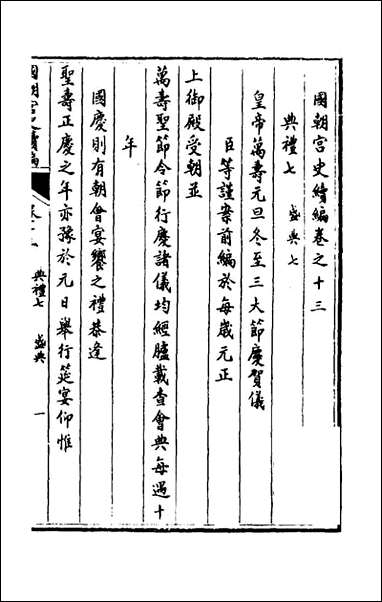 國朝宮史續編卷之十三
典禮七　盛典七
皇帝萬壽元旦冬至三大節慶賀儀
臣等謹案前編於每歲元正
上御殿受朝並
萬壽聖節令節行慶諸儀均經臚載查會典每遇十
年
國慶則有朝會宴饗之禮恭逢
聖壽正慶之年亦豫於元日舉行筵宴仰惟
國朝宮史續編
典禮七　盛典　一